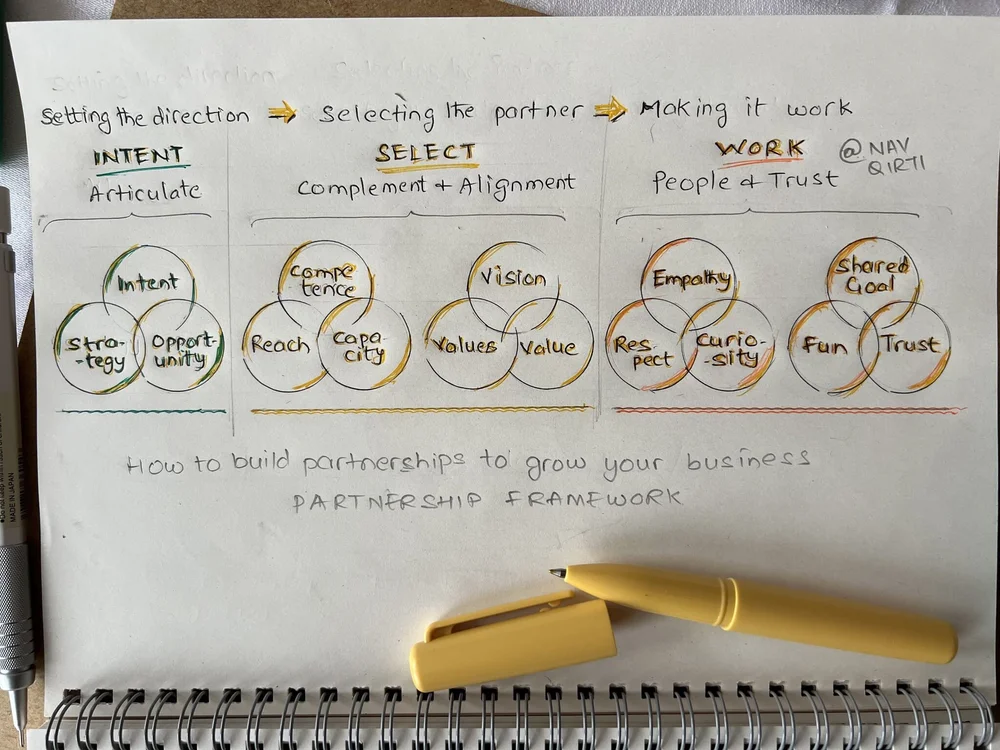 Setting the direction → Selecting the partner → Making it work
INTENT
Articulate
SELECT
Complement + Alignment
WORK
People + Trust
@NAV
QIRTI
Intent
Stra-
-tegy
Opport-
unity
Compe
tence
Reach
Capa-
city
Vision
Values
Value
Empathy
Res-
pect
Curio-
-sity
Shared
Goal
Fun
Trust
How to build partnerships to grow your business
PARTNERSHIP FRAMEWORK
MADE IN JAPAN